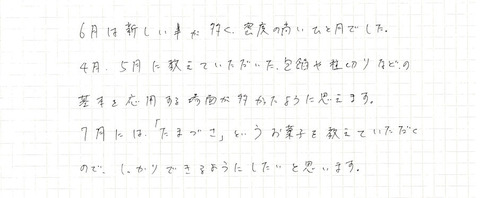 6月は新しい事が多く、密度の高いひと月でした。
4月、5月に教えていただいた、包餡や粒切りなどの
基本を応用する場面が多かったように思えます。
7月には、「たまづさ」というお菓子を教えていただく
ので、しっかりできるようにしたいと思います。